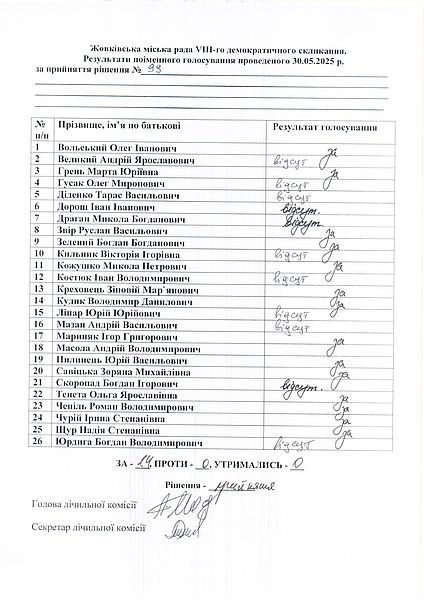 Жовківська міська рада VІІІ-го демократичного скликання.
Результати поіменного голосування проведеного 30.05.2025 р.
за прийняття рішення № 93
№ п/п Прізвище, ім’я по батькові Результат голосування
1 Вольський Олег Іванович за
2 Великий Андрій Ярославович відсут
3 Грень Марта Юріївна за
4 Гусак Олег Миронович відсут
5 Діденко Тарас Васильович відсут
6 Дорош Іван Іванович відсут.
7 Драган Микола Богданович відсут.
8 Звір Руслан Васильович за
9 Зелений Богдан Богданович за
10 Кильник Вікторія Ігорівна відсут
11 Кожушко Микола Петрович за
12 Костюк Іван Володимирович відсут
13 Креховець Зіновій Мар`янович за
14 Кудик Володимир Данилович за
15 Ліпар Юрій Юрійович відсут
16 Мазан Андрій Васильович відсут
17 Мариняк Ігор Григорович
18 Масола Андрій Володимирович за
19 Пилипець Юрій Васильович за
20 Савіцька Зоряна Михайлівна за
21 Скоропад Богдан Ігорович відсут.
22 Тенета Ольга Ярославівна за
23 Чепіль Роман Володимирович за
24 Чурій Ірина Степанівна за
25 Щур Надія Степанівна за
26 Юрдига Богдан Володимирович відсут
ЗА - 14, ПРОТИ - 0, УТРИМАЛИСЬ - 0
Рішення - прийняте
Голова лічильної комісії
Секретар лічильної комісії